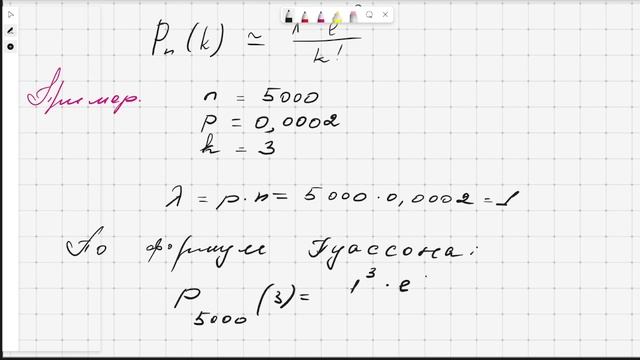 Pₙ(k) ≃ λ e / k!
Пример. n = 5000
p = 0,0002
k = 3
λ = p·n = 5000·0,0002 = 1
По формуле Пуассона:
P₅₀₀₀(3) = 1³·e